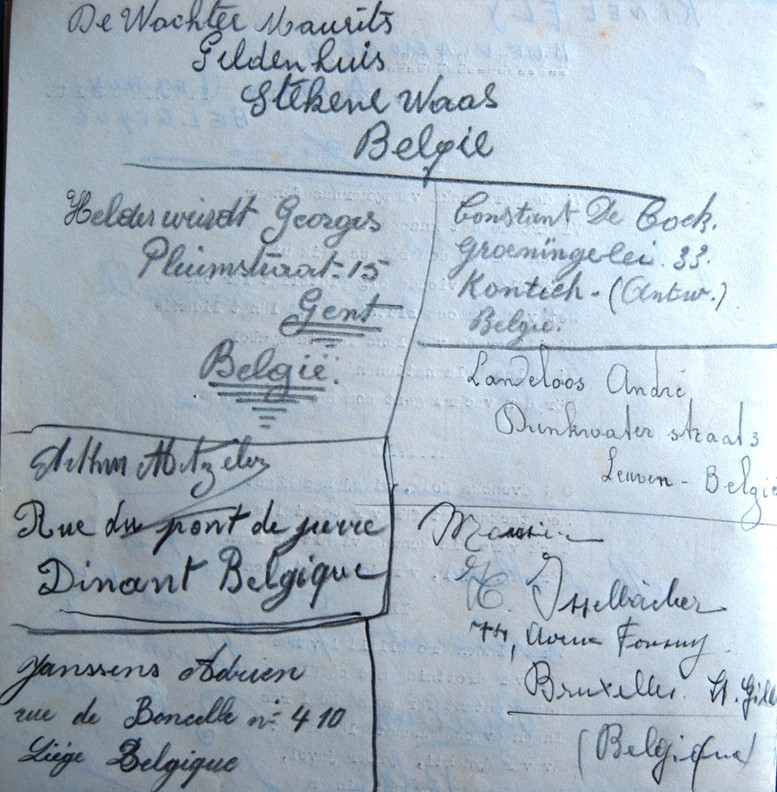 De Wachter Maurits
Gildenhuis
Stekene Waas
België
Helderweirdt Georges
Pluimstraat-15
Gent
België.
Constant De Cock.
Groeningelei. 33.
Kontich - (Antw.)
Belgie.
Landeloos André
Drinkwater straat 3
Leuven - België
Arthur
Rue du pont de pierre
Dinant Belgique
Monsieur
H. Isselbächer
74, Avenue Fonsny
Bruxelles. St. Gill
(Belgique)
Janssens Adrien
rue de Boncelle n° 410
Liége Belgique